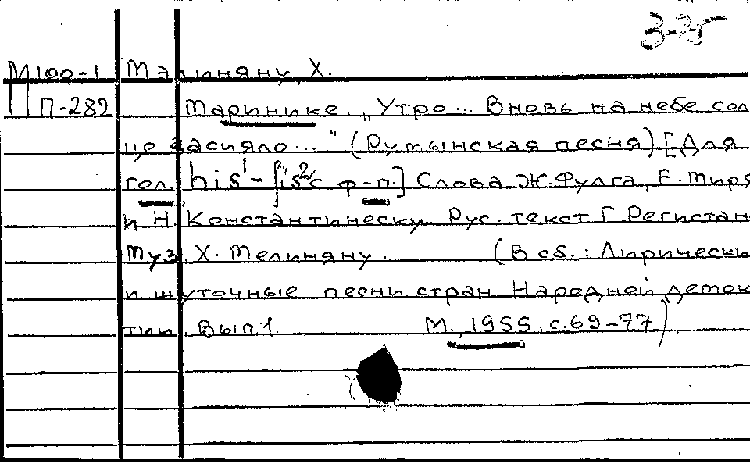 3-25
М190-1 Малиняну, Х.
П-282 Маринике. „Утро... Вновь на небе сол
це засияло..." (Румынская песня) [Для
гол. his¹-fis² с ф-п.] Слова Ж.Фулга, Е.Миря
и Н.Константинеску. Рус. текст Г.Регистан
Муз. Х.Мелиняну. (В сб.: Лирически
и шуточные песни стран Народной демок
тии. Вып.1. М., 1955, с.69-77)